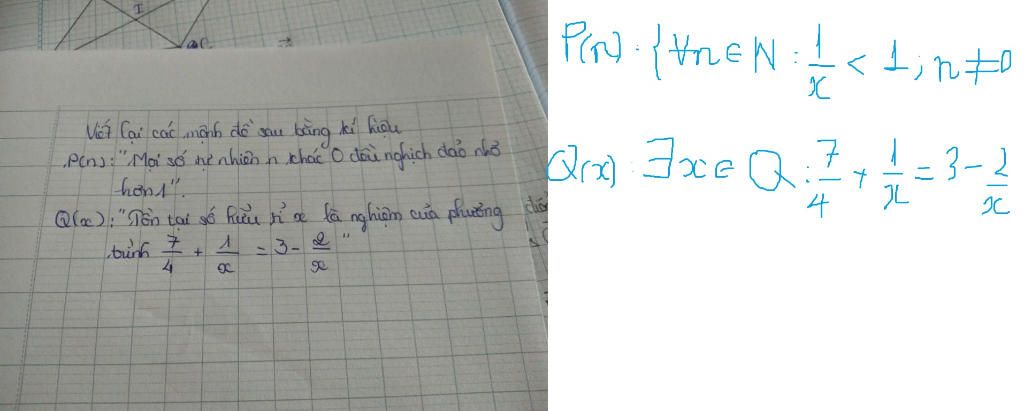 I
Viết lại các mệnh đề sau bằng kí hiệu
P(n): "Mọi số tự nhiên n khác 0 đều nghịch đảo nhỏ
hơn 1".
Q(x): "Tồn tại số hữu tỉ x là nghiệm của phương
trình 7/4 + 1/x = 3 - 2/x"
P(n): {∀n ∈ N : 1/x < 1; n ≠ 0
Q(x): ∃x ∈ Q : 7/4 + 1/x = 3 - 2/x